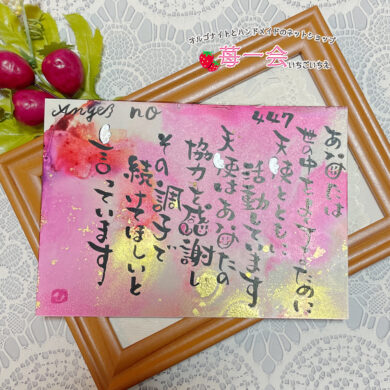 オルゴナイトとハンドメイドのネットショップ
苺一会
いちごいちえ
Anges no 447
あなたは
世の中をよくするために
天使とともに
活動しています
天使はあなたの
協力を感謝し
その調子で
続けてほしいと
言っています